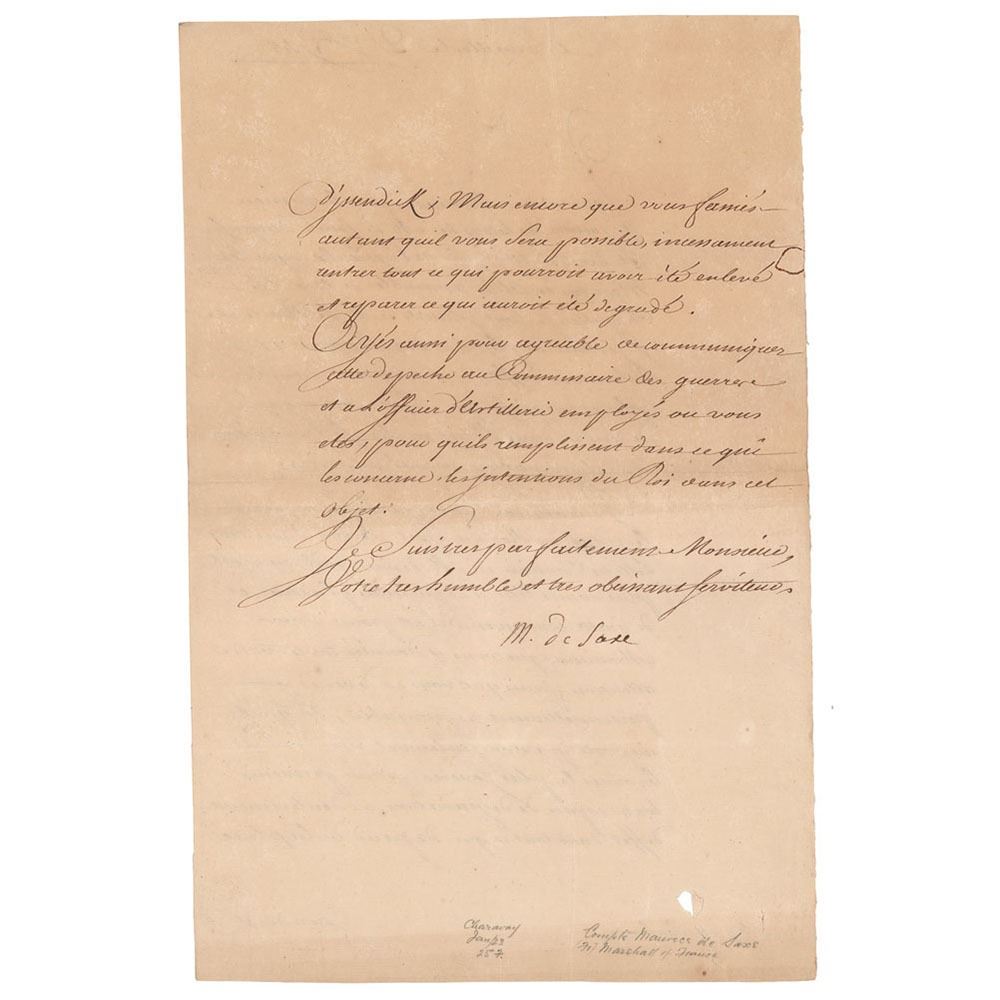 d'jssendick; Mais encore que vous fassiés
autant quil vous Sera possible, incessament
rentrer tout ce qui pourroit avoir été enlevé
et reparer ce qui auroit été degradé.
Ayés aussi pour agreable de communiquer
cette depeche au Commissaire des guerres
et a L'officier d'Artillerie employés ou vous
etes, pour quils remplissent dans ce qui
les concerne, les jntentions du Roi dans cet
objet.
Je Suis tres parfaitement Monsieur,
Votre tres humble et tres obeissant serviteur.
M. de Saxe
Charavay
25 f
Compte Maurice de Saxe
Marshall of France